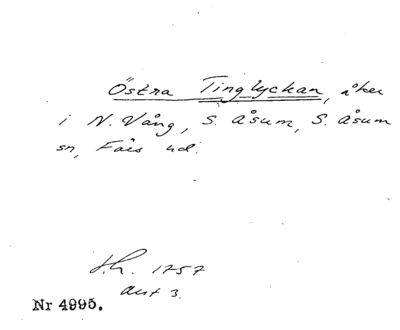 Östra Tinglyckan, åker
i N. Vång, S. Åsum, S. Åsum
sn, Färs hd.
1757
akt 3.
Nr 4995.